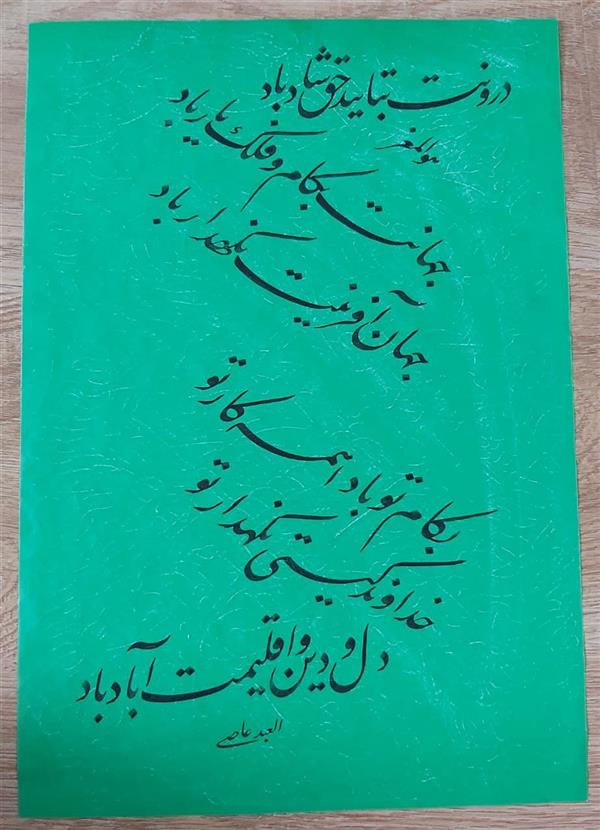 درونت بتایید حق شاد باد
هو المعز
جهانت بکام و فلک یار باد
جهان آفرینت نگهدار باد
بکام تو بادا همه کار تو
خداوند گیتی نگهدار تو
دل و دین و اقلیمت آباد باد
العبد عاصی